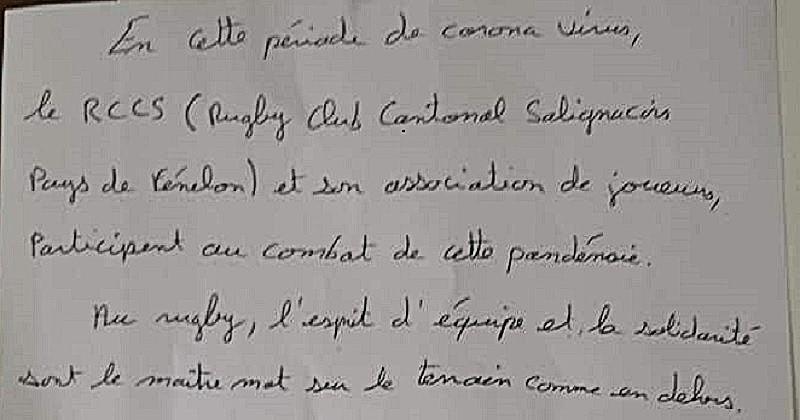 En cette période de corona virus,
le RCCS (Rugby Club Cantonal Salignacois
Pays de Fénelon) et son association de joueurs,
Participent au combat de cette pandémie.
Au rugby, l'esprit d'équipe et la solidarité
sont le maître mot sur le terrain comme en dehors.